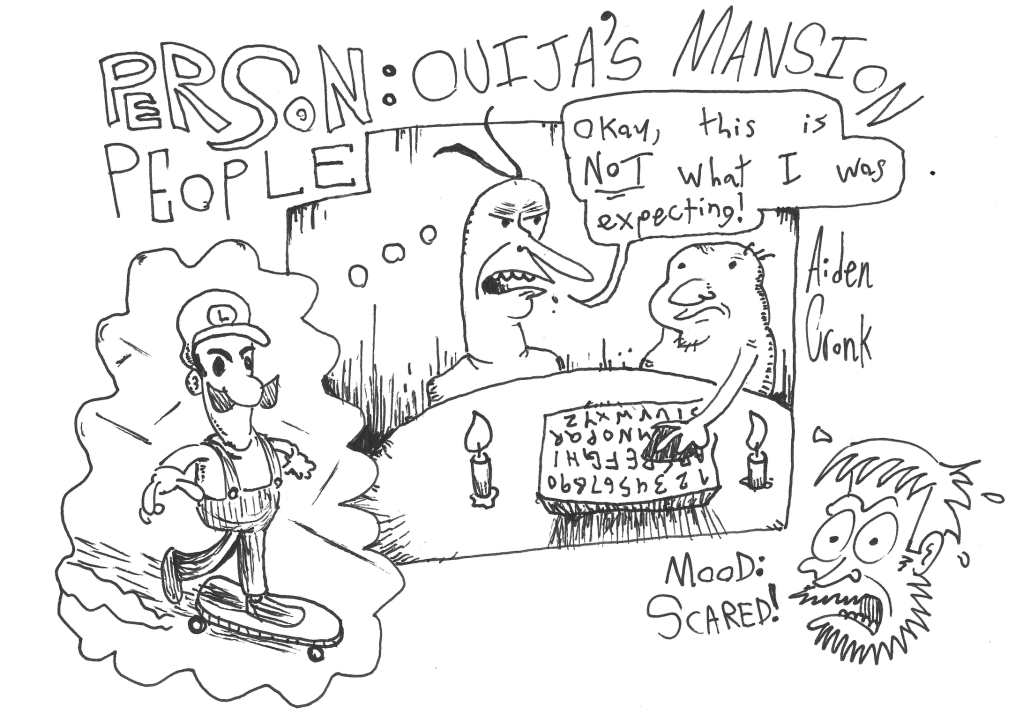 PERSON: OUIJA'S MANSION
PEOPLE
Okay, this is
NOT what I was
expecting!
Aiden
Cronk
L
UVWXYZ
MNOPQR
EFGHI
1234567890
MOOD:
SCARED!